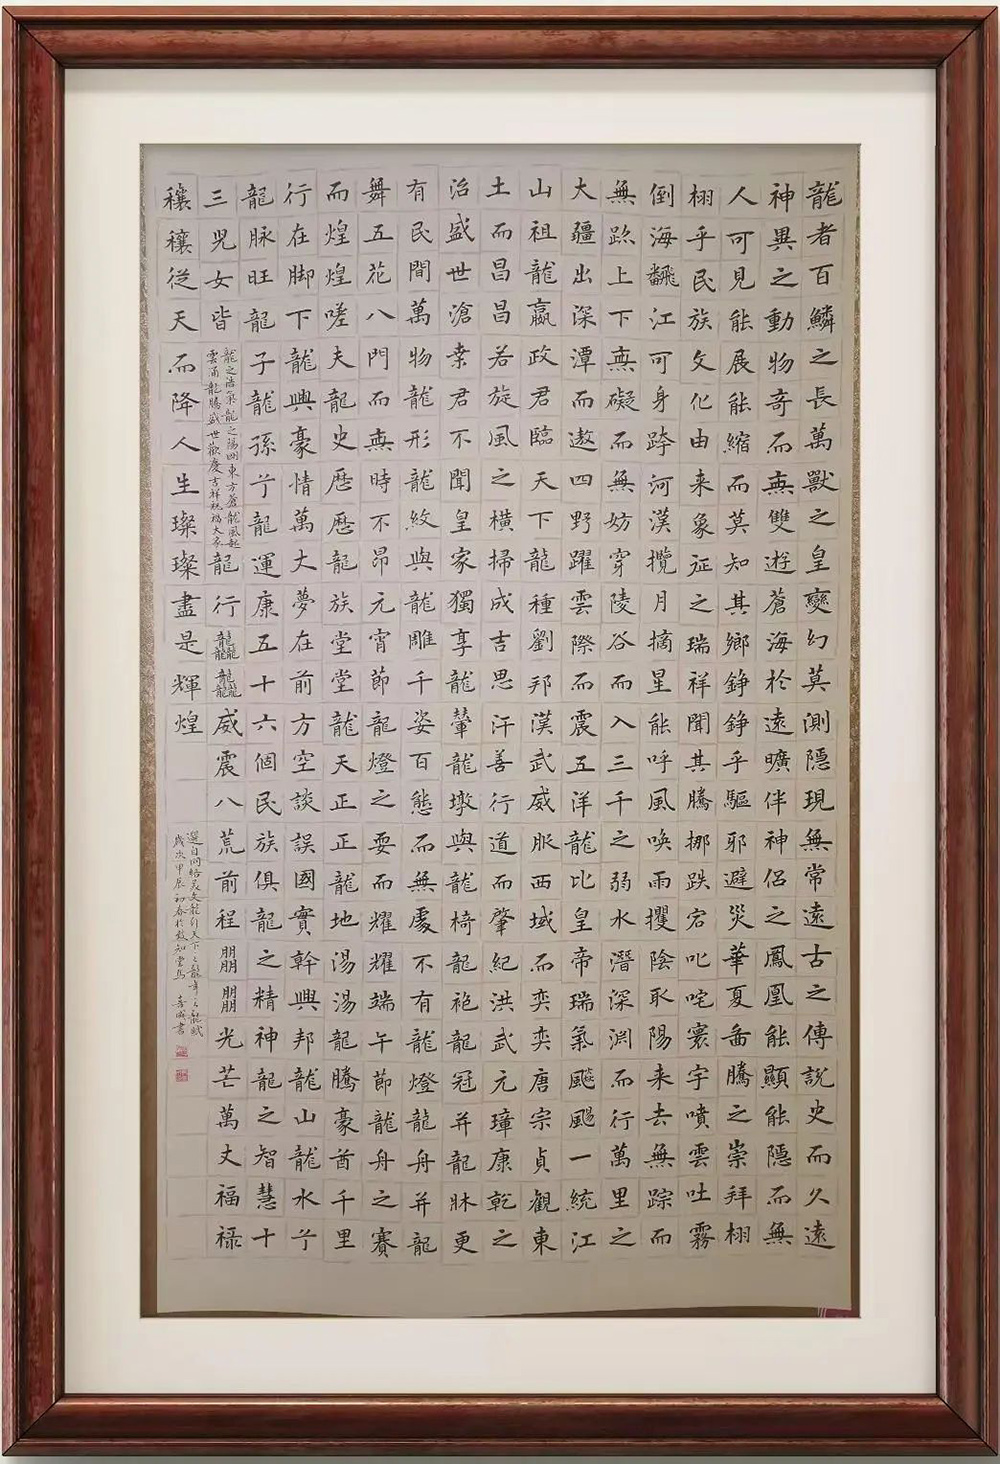 龍者百鱗之長萬獸之皇變幻莫測隱現無常遠古之傳說史而久遠
神異之動物奇而無雙遊蒼海於遠曠伴神侶之鳳凰能顯能隱而無
人可見能展能縮而莫知其鄉錚錚乎驅邪避災華夏畬騰之崇拜栩
栩乎民族文化由来象征之瑞祥聞其騰挪跌宕叱咤寰宇噴雲吐霧
倒海翻江可身跨河漢攬月摘星能呼風唤雨攫陰取陽来去無踪而
無跡上下無礙而無妨穿陵谷而入三千之弱水潛深淵而行萬里之
大疆出深潭而遨四野躍雲際而震五洋龍比皇帝瑞氣颸颸一統江
山祖龍嬴政君臨天下龍種劉邦漢武威服西域而奕奕唐宗貞觀東
土而昌昌若旋風之橫掃成吉思汗善行道而肇紀洪武元璋康乾之
治盛世滄桑君不聞皇家獨享龍輦龍墩與龍椅龍袍龍冠并龍牀更
有民間萬物龍形龍紋與龍雕千姿百態而無處不有龍燈龍舟并龍
舞五花八門而無時不昂元宵節龍燈之耍而耀耀端午節龍舟之賽
而煌煌嗟夫龍史歷歷龍族堂堂龍天正正龍地湯湯龍騰豪酋千里
行在脚下龍興豪情萬丈夢在前方空談誤國實幹興邦龍山龍水兮
龍脉旺龍子龍孫兮龍運康五十六個民族俱龍之精神龍之智慧十
三兒女皆
龍之浩氣龍之陽剛東方蒼龍風起
雲涌龍騰盛世歡慶吉祥祝福大家
龍行龘龘威震八荒前程朤朤光芒萬丈福禄
穰穰從天而降人生璨璨盡是輝煌
選自同結良文龍行天下之龍年之龍賦
歲次甲辰初春於致知堂馬 喜成書